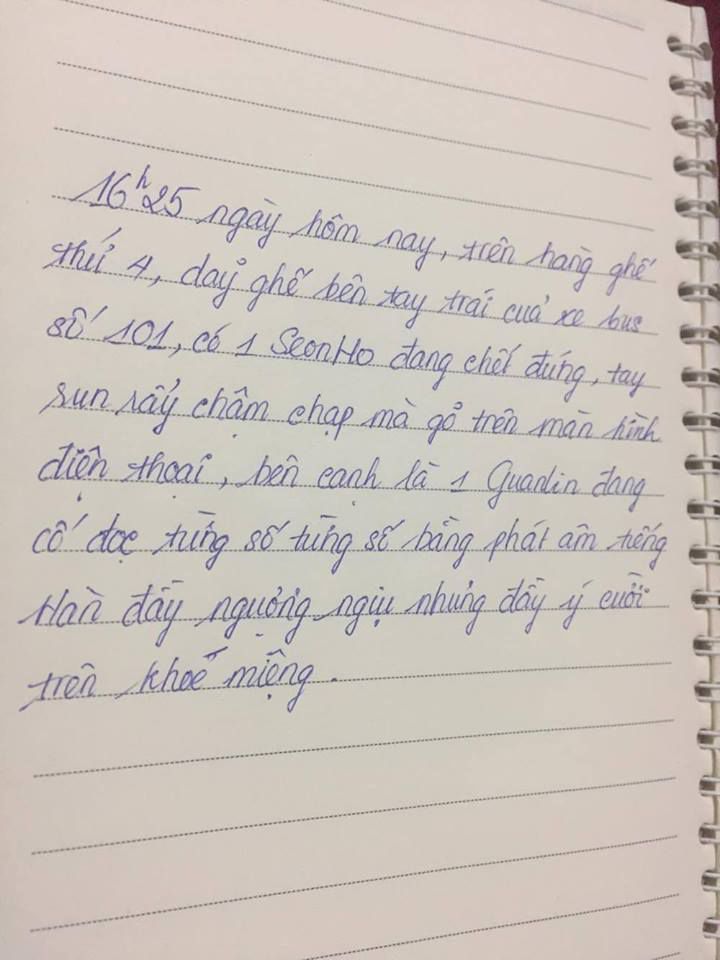 16h25 ngày hôm nay, trên hàng ghế
thứ 4, dãy ghế bên tay trái của xe bus
số 101, có 1 SeonHo đang chết đứng, tay
run rẩy chậm chạp mà gõ trên màn hình
điện thoại, bên cạnh là 1 Guanlin đang
cố đọc từng số từng số bằng phát âm tiếng
Hàn đầy ngượng ngịu nhưng đầy ý cười
trên khoé miệng.